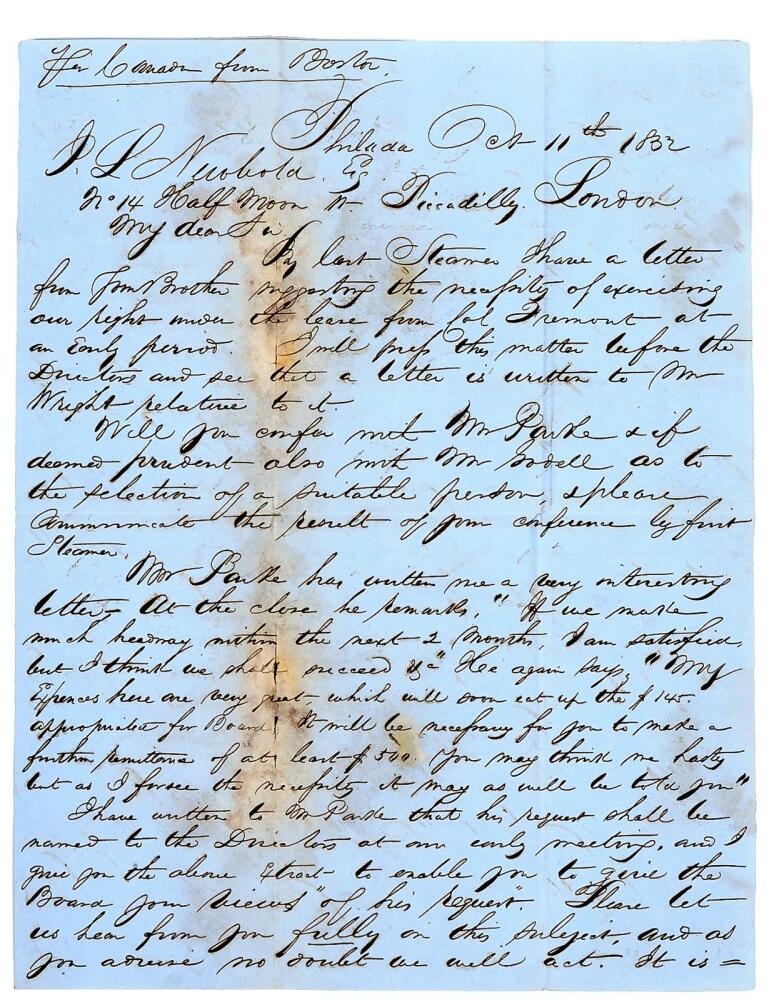 Per Canada from Boston.
Philada Oct 11th 1852
J. L Newbold Esq
No 14 Half Moon St. Piccadilly. London.
My dear Sir
By last Steamer I have a letter
from Your Brother suggesting the necessity of exercising
our right under the lease from Col Fremont at
an Early period. I will press this matter before the
Directors and see that a letter is written to Mr
Wright relative to it.
Will you confer with Mr Parke & if
deemed prudent also with Mr as to
the selection of a suitable person, & please
Communicate the result of your conference by first
Steamer.
Mr Parke has written me a very interesting
letter, At the close he remarks, "If we make
much headway within the next 2 months, I am satisfied,
but I think we shall succeed &c" He again says, "My
Expences here are very great, which will soon eat up the $145.
appropriated for Board. It will be necessary for you to make a
further remittance of at least $500. You may think me hasty
but as I forsee the necessity it may as well be told you"
I have written to Mr Parke that his request shall be
named to the Directors at our early meeting, and I
give you the above Extract to enable you to give the
Board your views "of his request". Please let
us hear from you fully on this subject, and as
you advise no doubt we will act. It is =